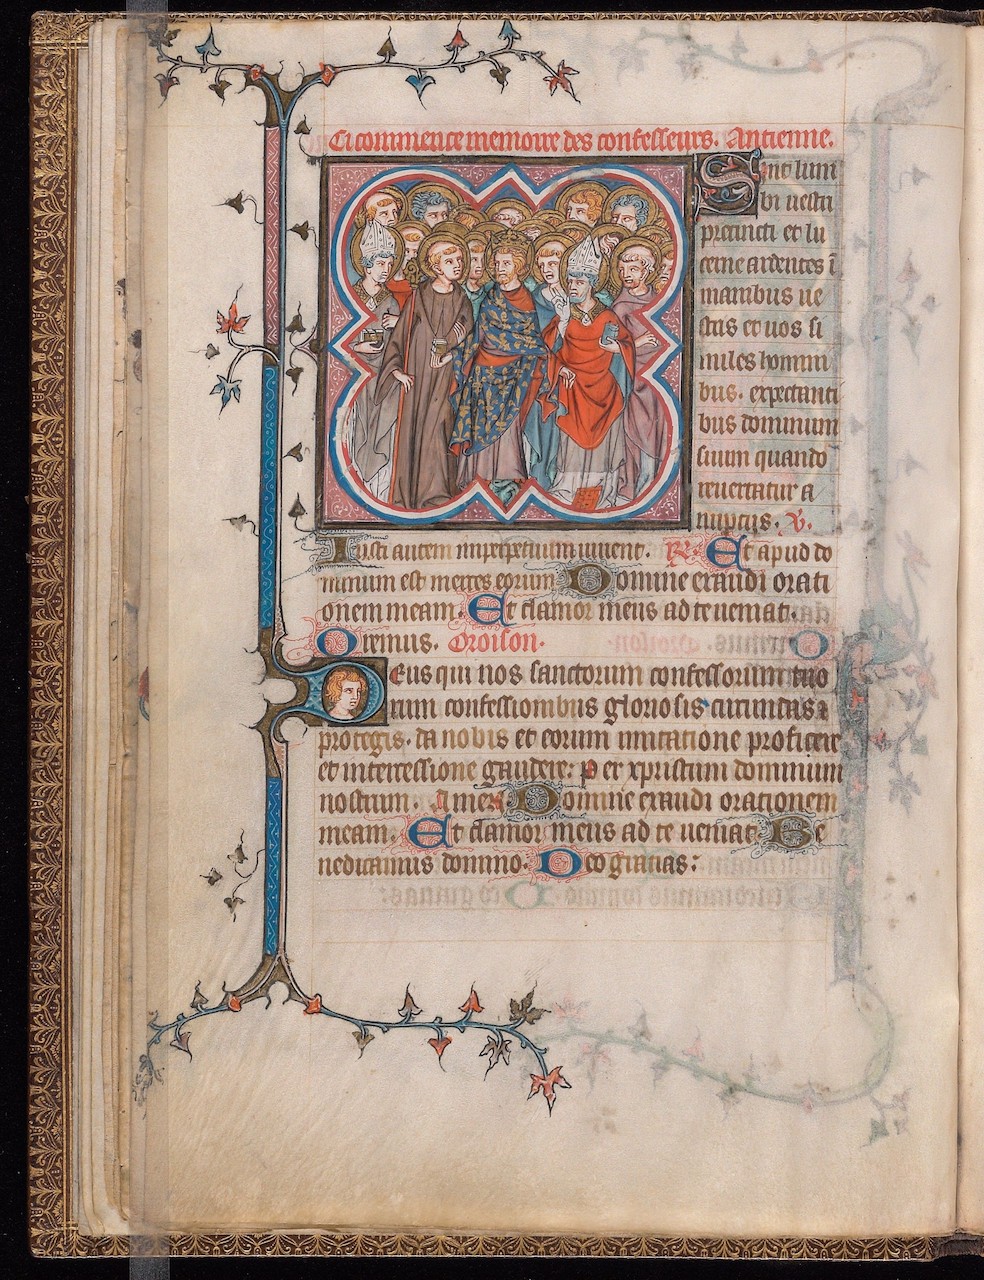 Ci commence memoire des confesseurs. Antienne.
Sint lum
bi uestri
precincti et lu
cerne ardentes ī
manibus ue
stris et uos si
miles homini
bus. expectanti
bus dominum
suum quando
reuertatur a
nuptiis. V.
Iusti autem inperpetuum uiuent. R. Et apud do
minum est merces eorum Domine exaudi orati
onem meam. Et clamor meus ad te ueniat.
Oremus. Oroison.
Deus qui nos sanctorum confessorum tuo
rum confessionibus gloriosis circundas &
protegis. da nobis et eorum imitatione proficere
et intercessione gaudere: Per xpristum dominum
nostrum. Amen Domine exaudi orationem
meam. Et clamor meus ad te ueniat. Be
nedicamus domino. Deo gracias: